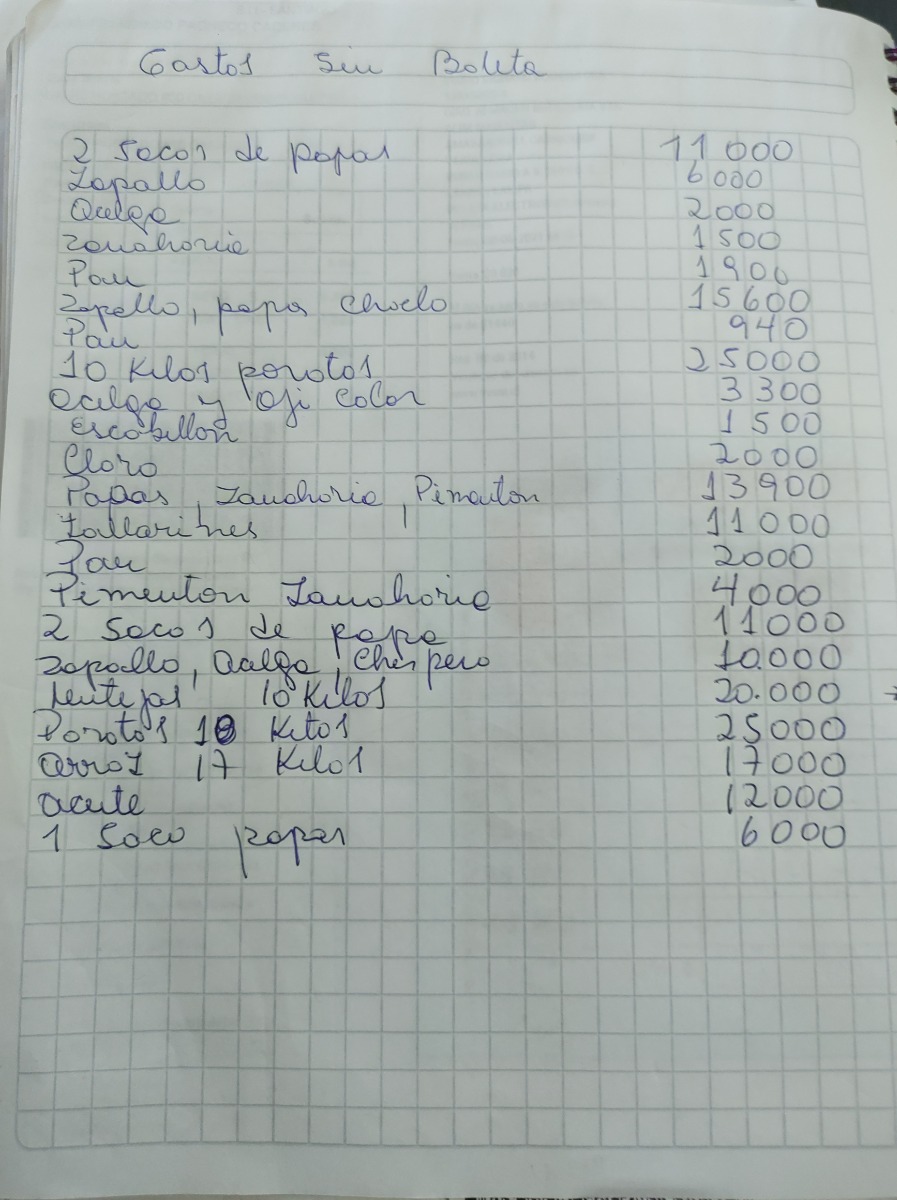 Gastos Sin Boleta
2 Sacos de papas 11 000
Zapallo 6000
Acelga 2000
zanahoria 1500
Pan 1900
Zapallo, papa choclo 15600
Pan 940
10 Kilos porotos 25000
acelga y aji color 3300
escobillon 1500
Cloro 2000
Papas, Zanahoria, Pimenton 13900
tallarines 11000
Pan 2000
Pimenton Zanahoria 4000
2 Sacos de papa 11000
zapallo, Acelga, 10.000
Lentejas 10 Kilos 20.000
Porotos 10 Kilos 25000
arroz 17 Kilos 17000
aceite 12000
1 Saco papas 6000